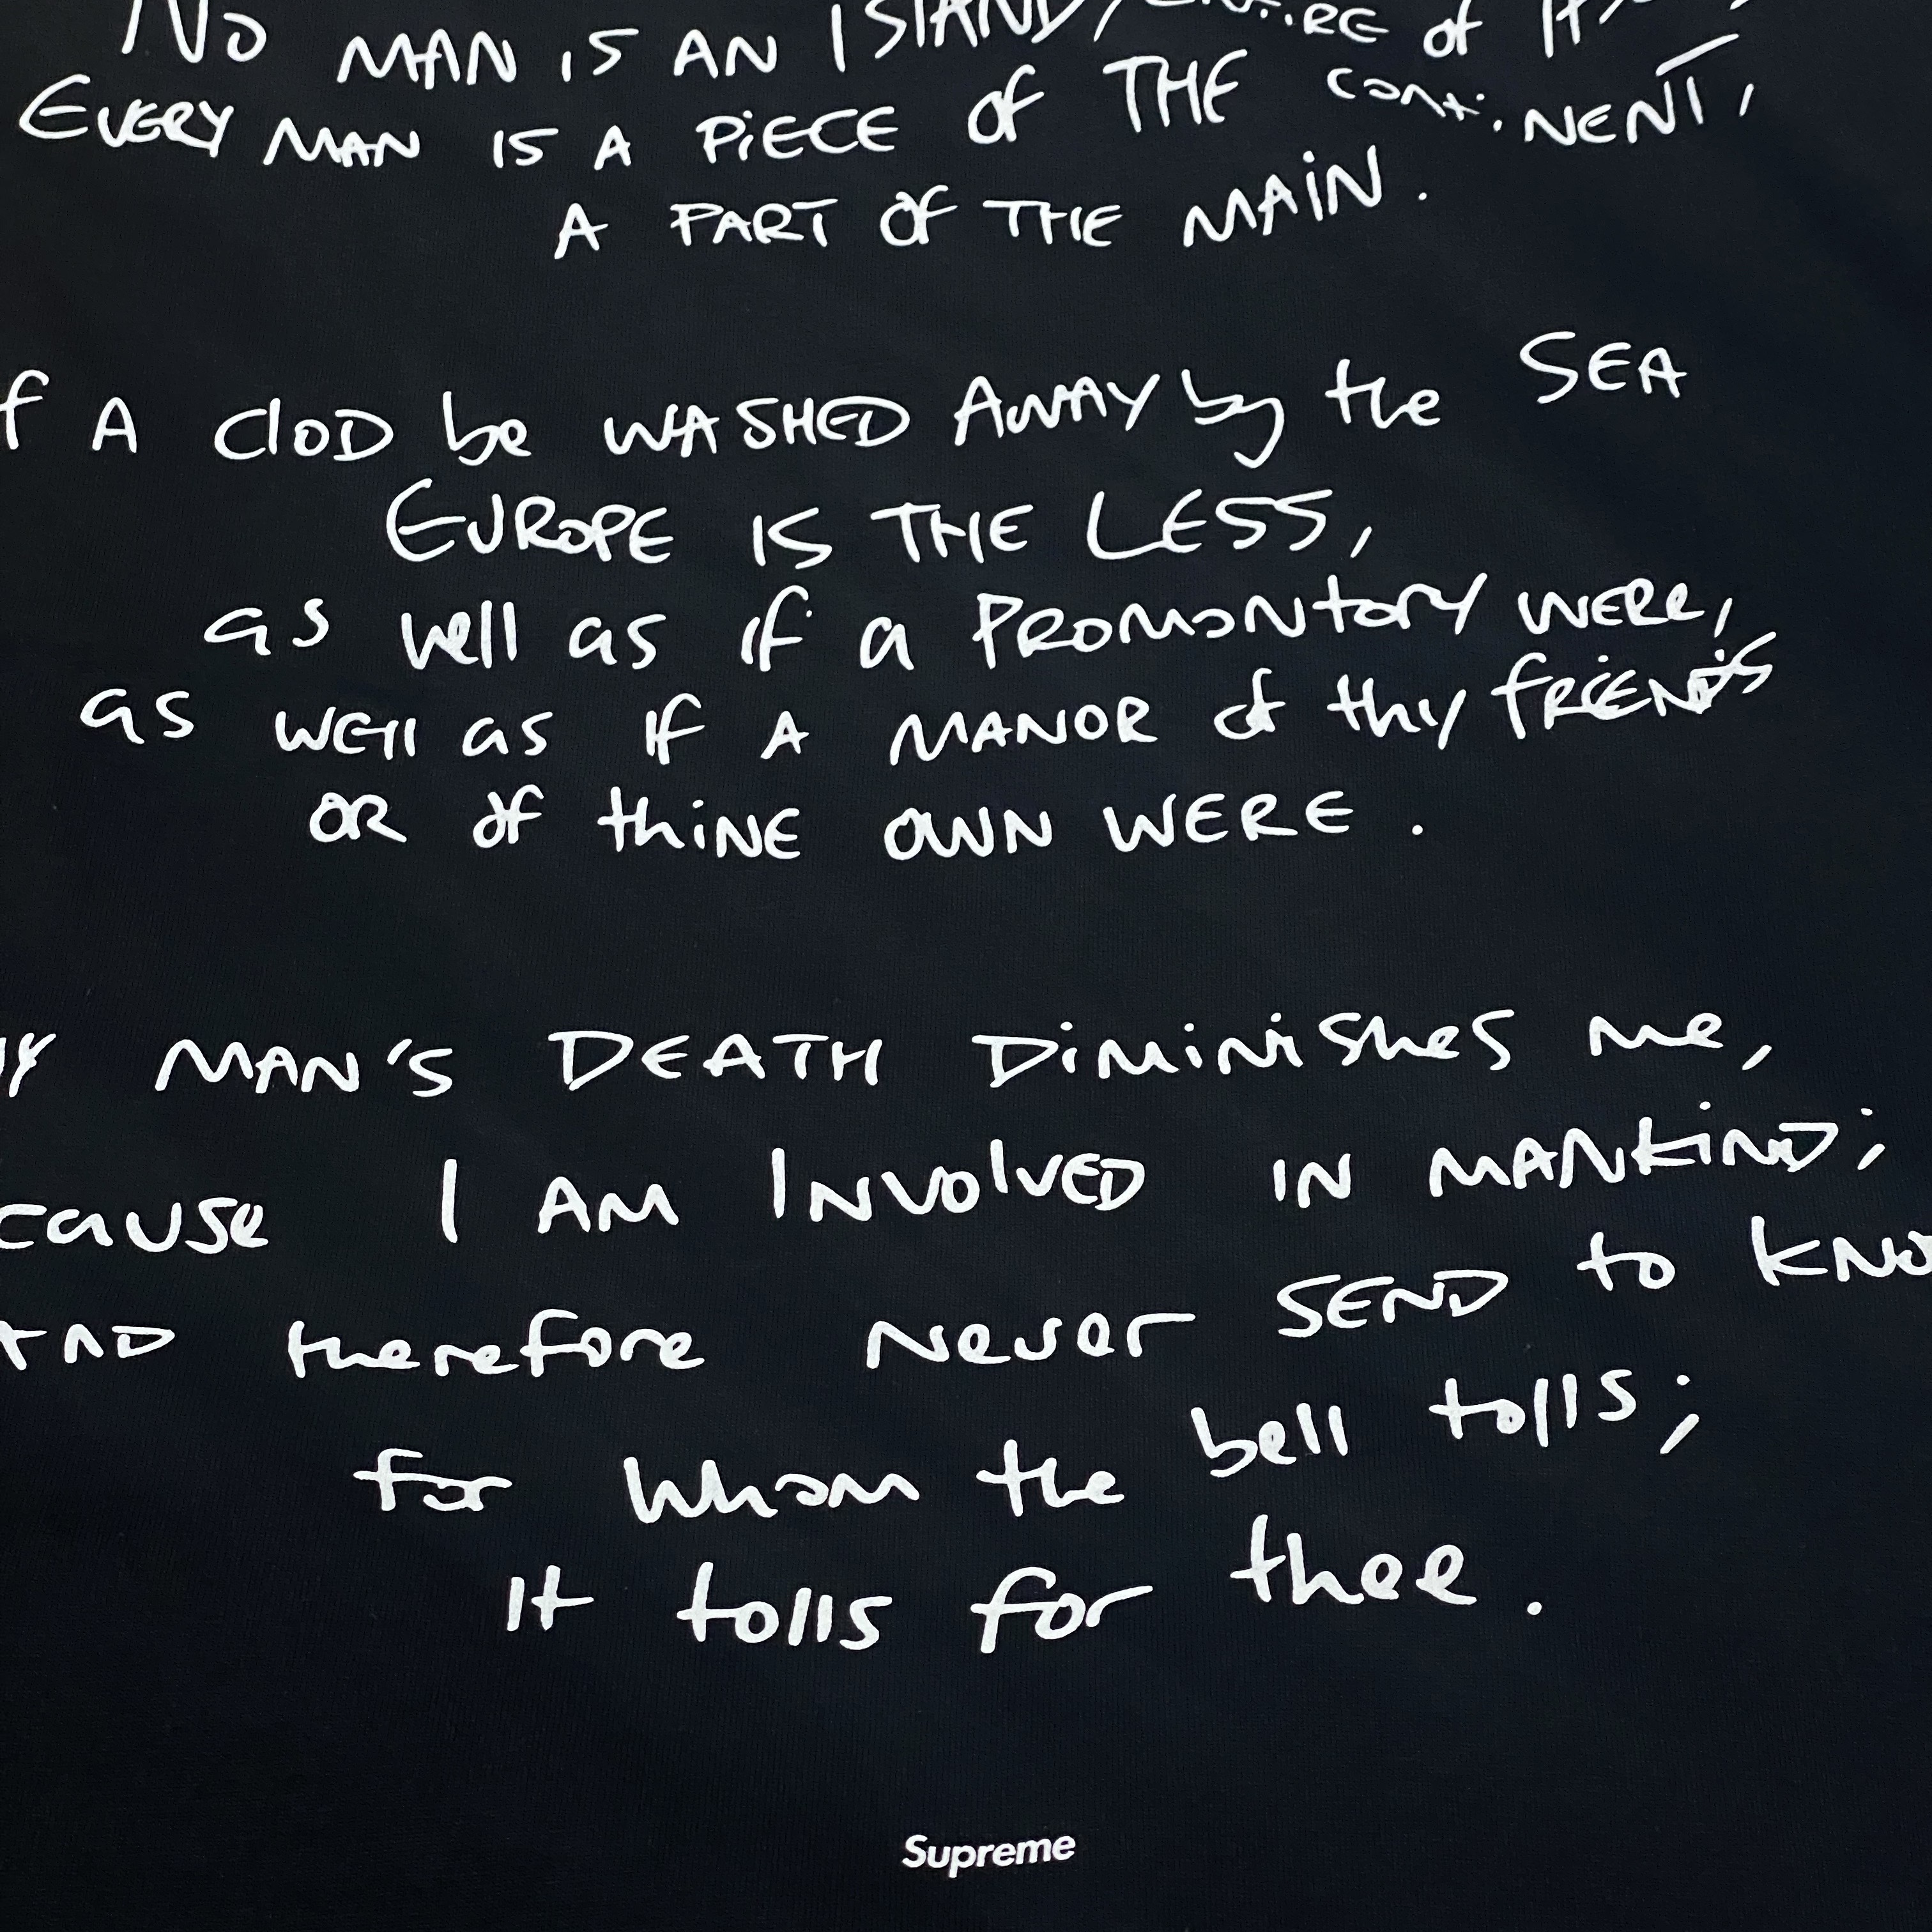 No MAN IS AN ISlAND, ENTiRE of
EVERY MAN IS A PiECE of THE ContiNENT,
A PART OF THE MAiN.
f A ClOD be WASHED AWAY by the SEA
EUROPE IS THE LESS,
as well as if a PROMONtORY WERE,
as WEll as If A MANOR of thy fRiENDS
OR of thiNE OWN WERE.
MAN'S DEATH DiMiNiShes me,
cause I AM INVOlVED IN MANKiND;
AND therefore Never SEND to KNO
for Whom the bell tolls;
It tolls for thee.
Supreme